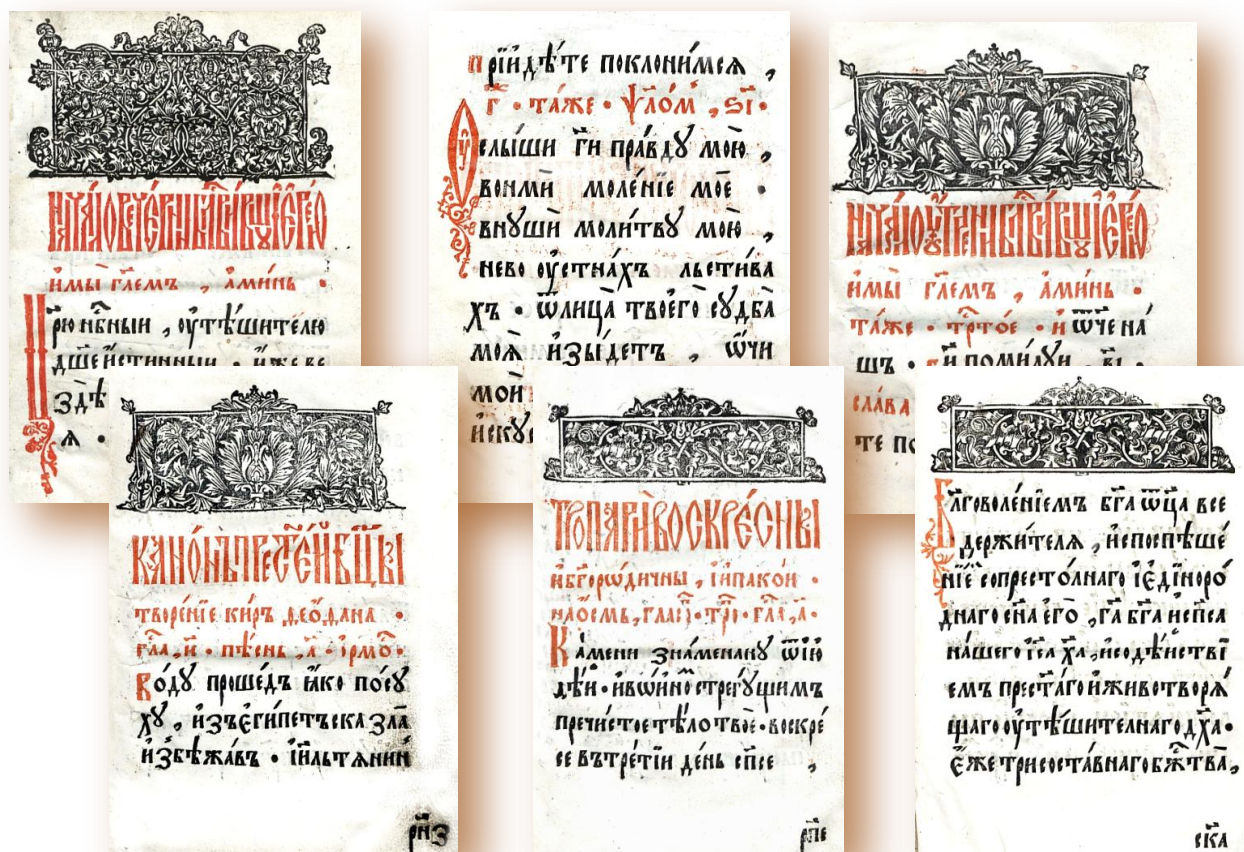 имы̀ гл҃емъ , а҆ми́нь ·
рю нб҃ныи , ᲂу҆тѣ́шителю
дш҃е и҆́стинныи · и҆́же ве
здѣ
ѧ ·
прїидѣ́те поклони́мсѧ ,
г҃ · та́же · ѱало́м , ѕ҃і ·
ᲂу҆слы́ши гд҃и пра́вдꙋ мою̀ ,
вонмѝ моле́нїе моѐ ·
внꙋшѝ моли́твꙋ мою̀ ,
не во ᲂу҆стна́хъ льсти́ва
хъ · ѿ лица̀ твоегѡ̀ сꙋдба̀
моѧ̀ и҆зы́детъ , ѻ҆́чи
мои
и҆скꙋ
имы̀ гл҃емъ , а҆ми́нь ·
та́же · трⷭ҇то́е · и҆ ѿ́че на́
шъ · гд҃и поми́лꙋи , в҃і ·
сла́ва
те по
кано́нъ прест҃е́и бцⷣы
творе́нїе ки́ръ ѳеѻ҆́дана ·
гла́ , и҃ · пѣ́снь , а҃ · і҆рмо́ ·
во́дꙋ проше́дъ ꙗ҆́ко по́сꙋ
хꙋ , и҆зъ є҆ги́петъска зла̀
и҆збѣжа́въ · і҆и҃льтѧнин
рн҃з
тропарѝ воскре́сны
и҆ бг҃оро́дичны , и҆ и҆пакои ·
на ѻ҆смь , гла́со · трѻ · гла , а҃ ·
ка́мени зна́менанꙋ ѿ і҆ю
дѣ́и · и҆ во́инѡ стрегꙋ́щимъ
пречи́стое тѣ́ло твоѐ · воскре́
се въ тре́тїи де́нь сп҃се ,
рп҃е
бл҃говоле́нїемъ бг҃а ѿца̀ все
держи́телѧ , и҆ поспѣше́
нїе сопресто́лнаго і҆ є҆диноро́
днаго сн҃а є҆го̀ , гд҃а бг҃а и҆ сп҃са
на́шего і҆с҃а хр҃та̀ , и҆ содѣ́иствї
емъ прест҃а́го и҆ животворѧ́
щаго ᲂу҆тѣ́шителнаго дх҃а ·
є҆́же трисоста́внаго бж҃тва̀ ,
ск҃а